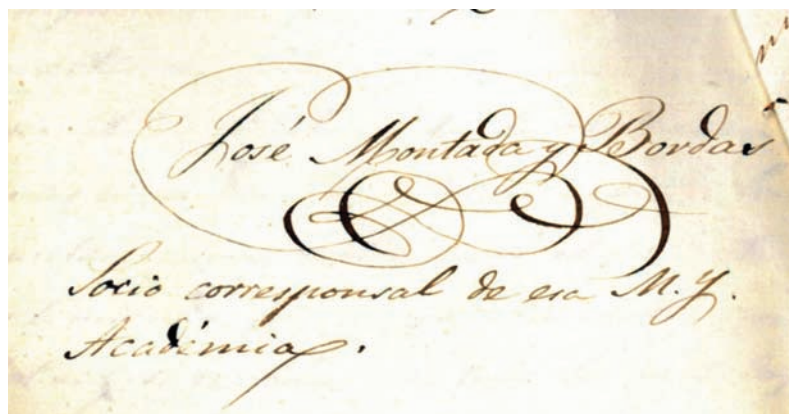 José Montada y Bordas
Socio corresponsal de esa M. Y.
Académia.